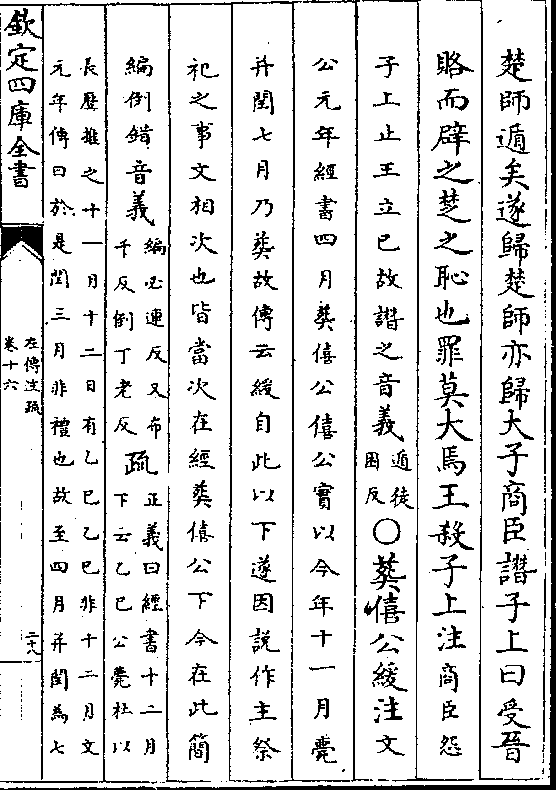 楚師遁矣遂歸楚師亦歸大子商臣譖子上曰受晉
賂而辟之楚之恥也罪莫大焉王殺子上注商臣怨
子上止王立已故譖之音義遁徒
困反〇葬僖公緩注文
公元年經書四月葬僖公僖公實以今年十一月薨
并閏七月乃葬故傳云緩自此以下遂因說作主祭
祀之事文相次也皆當次在經葬僖公下今在此簡
編倒錯音義編必連反又布
千反倒丁老反疏正義曰經書十二月
下云乙巳公薨杜以
長歷推之十一月十二日有乙巳乙巳非十二月文
元年傳曰於是閏三月非禮也故至四月并閏為七
欽定四庫全書
左傳注疏
卷十六
二十九